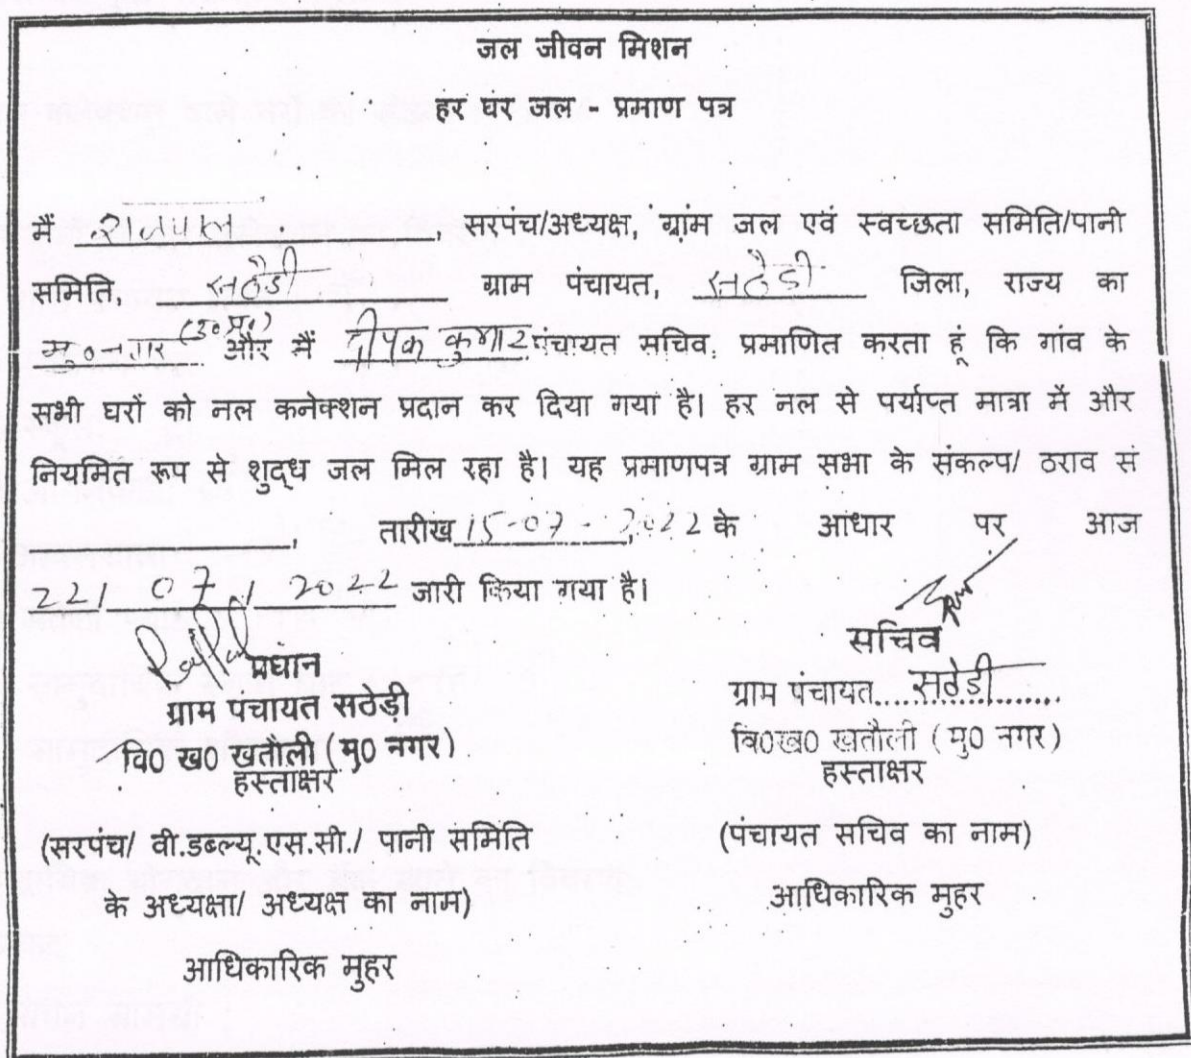 जल जीवन मिशन
हर घर जल - प्रमाण पत्र
मैं सरपंच/अध्यक्ष, ग्राम जल एवं स्वच्छता समिति/पानी
समिति, सठेडी ग्राम पंचायत, सठेडी जिला, राज्य का
मु०नगर (उ०प्र०) और मैं दीपक कुमार पंचायत सचिव, प्रमाणित करता हूं कि गांव के
सभी घरों को नल कनेक्शन प्रदान कर दिया गया है। हर नल से पर्याप्त मात्रा में और
नियमित रूप से शुद्ध जल मिल रहा है। यह प्रमाणपत्र ग्राम सभा के संकल्प/ ठराव सं
, तारीख 15-07-2022 के आधार पर आज
22/ 07 / 2022 जारी किया गया है।
प्रधान
ग्राम पंचायत सठेड़ी
वि0 ख0 खतौली (मु0 नगर)
हस्ताक्षर
(सरपंच/ वी.डब्ल्यू.एस.सी./ पानी समिति
के अध्यक्षा/ अध्यक्ष का नाम)
आधिकारिक मुहर
सचिव
ग्राम पंचायत सठेडी
वि0ख0 खतौली (मु0 नगर)
हस्ताक्षर
(पंचायत सचिव का नाम)
आधिकारिक मुहर